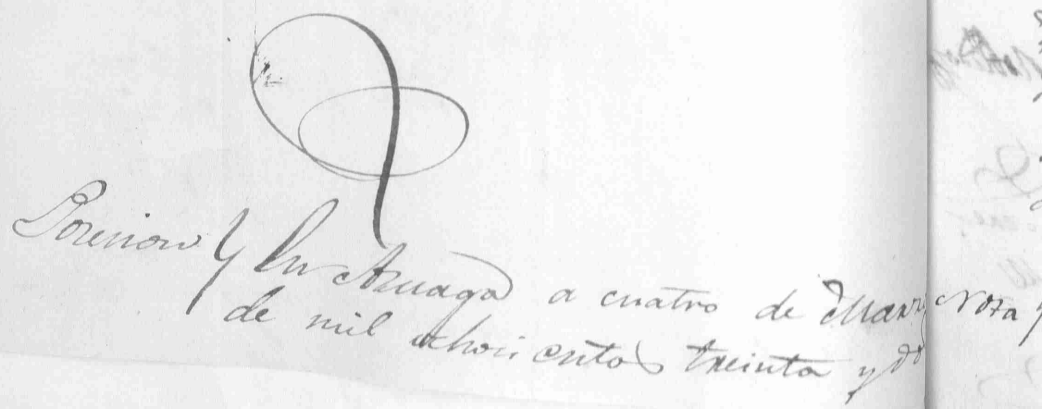 Posesion y En Azuaga a cuatro de Marzo
de mil ochocientos treinta y dos
Nota